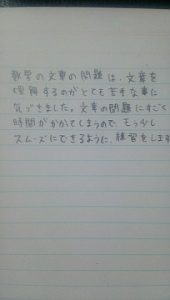 数学の文章の問題は、文章を
理解するのがとても苦手な事に
気づきました。文章の問題にすごく
時間がかかてしまうので、もう少し
スムーズにできるように、練習をします